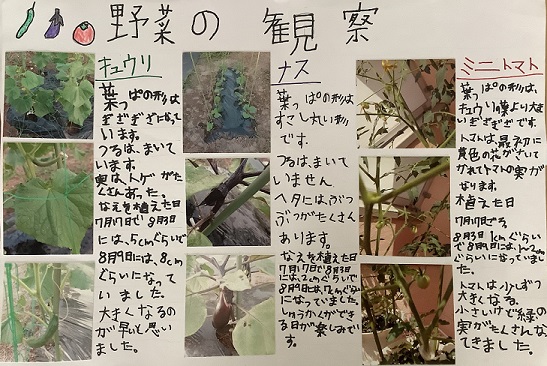 野菜の観察
キュウリ
葉っぱの形は、
ぎざぎざになって
います。
つるは、まいて
います。
実は、トゲがた
くさんあった。
なえを植えた日
7月17日で8月3日
には、5cmぐらいで
8月9日には、8cm
ぐらいになって
いました。
大きくなるの
が早いと思い
ました。
ナス
葉っぱの形は、
すこし丸い形
です。
つるは、まいて
いません
ヘタには、ぶつ
ぶつがたくさん
あります。
なえを植えた日
7月17日で8月3日
には、2cmぐらいで
8月9日は、12cmぐらい
になっていました。
しゅうかくができ
る日が楽しみで
す。
ミニトマト
葉っぱの形は、
キュウリの葉より大き
いぎざぎざです。
トマトは、最初に
黄色の花がさいて
かれてトマトの実が
なります。
植えた日
7月17日で
8月3日1cmぐらい
で8月9日には、
ぐらいになっていまし
た。
トマトは少しずつ
大きくなる。
小さいけど緑の
実がたくさんな
てきました。